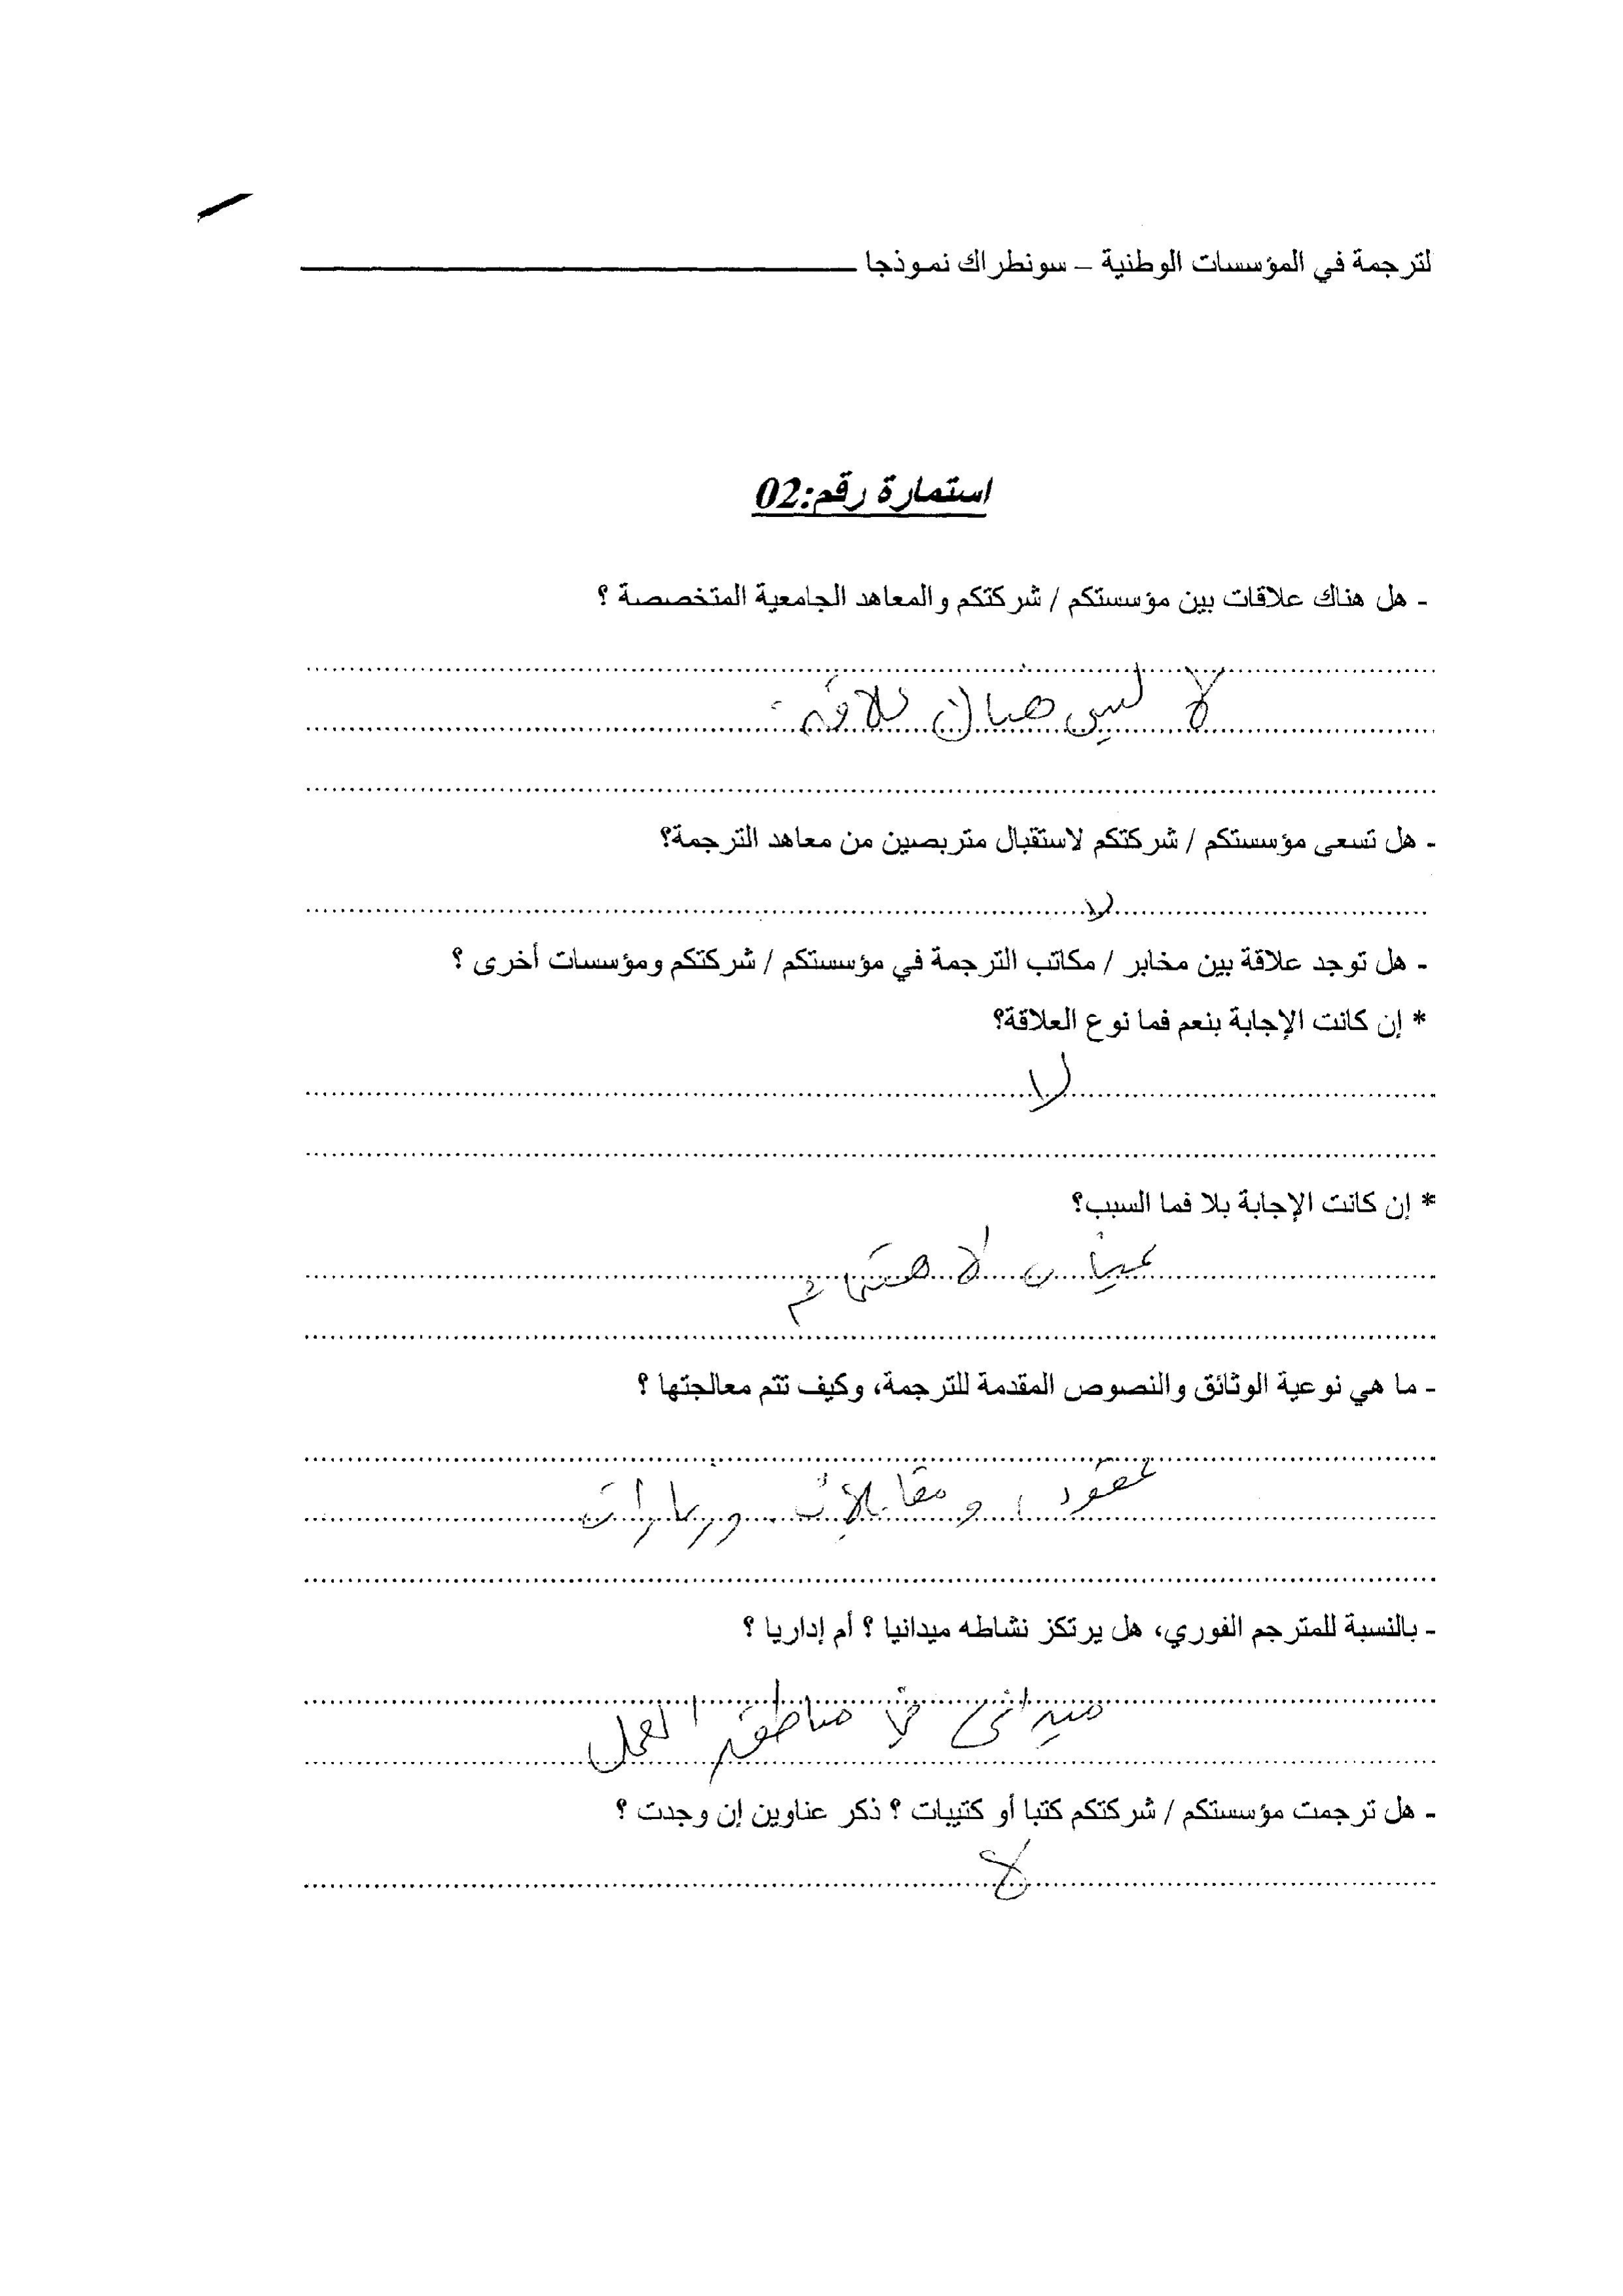 لترجمة في المؤسسات الوطنية – سونطراك نموذجا
استمارة رقم:02
- هل هناك علاقات بين مؤسستكم / شركتكم والمعاهد الجامعية المتخصصة ؟
لا ليس هناك علاقة
- هل تسعى مؤسستكم / شركتكم لاستقبال متربصين من معاهد الترجمة؟
لا
- هل توجد علاقة بين مخابر / مكاتب الترجمة في مؤسستكم / شركتكم ومؤسسات أخرى ؟
* إن كانت الإجابة بنعم فما نوع العلاقة؟
لا
* إن كانت الإجابة بلا فما السبب؟
الاهتمام
- ما هي نوعية الوثائق والنصوص المقدمة للترجمة، وكيف تتم معالجتها ؟
عقود، ومقابلات وزيارات
- بالنسبة للمترجم الفوري، هل يرتكز نشاطه ميدانيا ؟ أم إداريا ؟
ميداني في مناطق العمل
- هل ترجمت مؤسستكم / شركتكم كتبا أو كتيبات ؟ ذكر عناوين إن وجدت ؟
لا